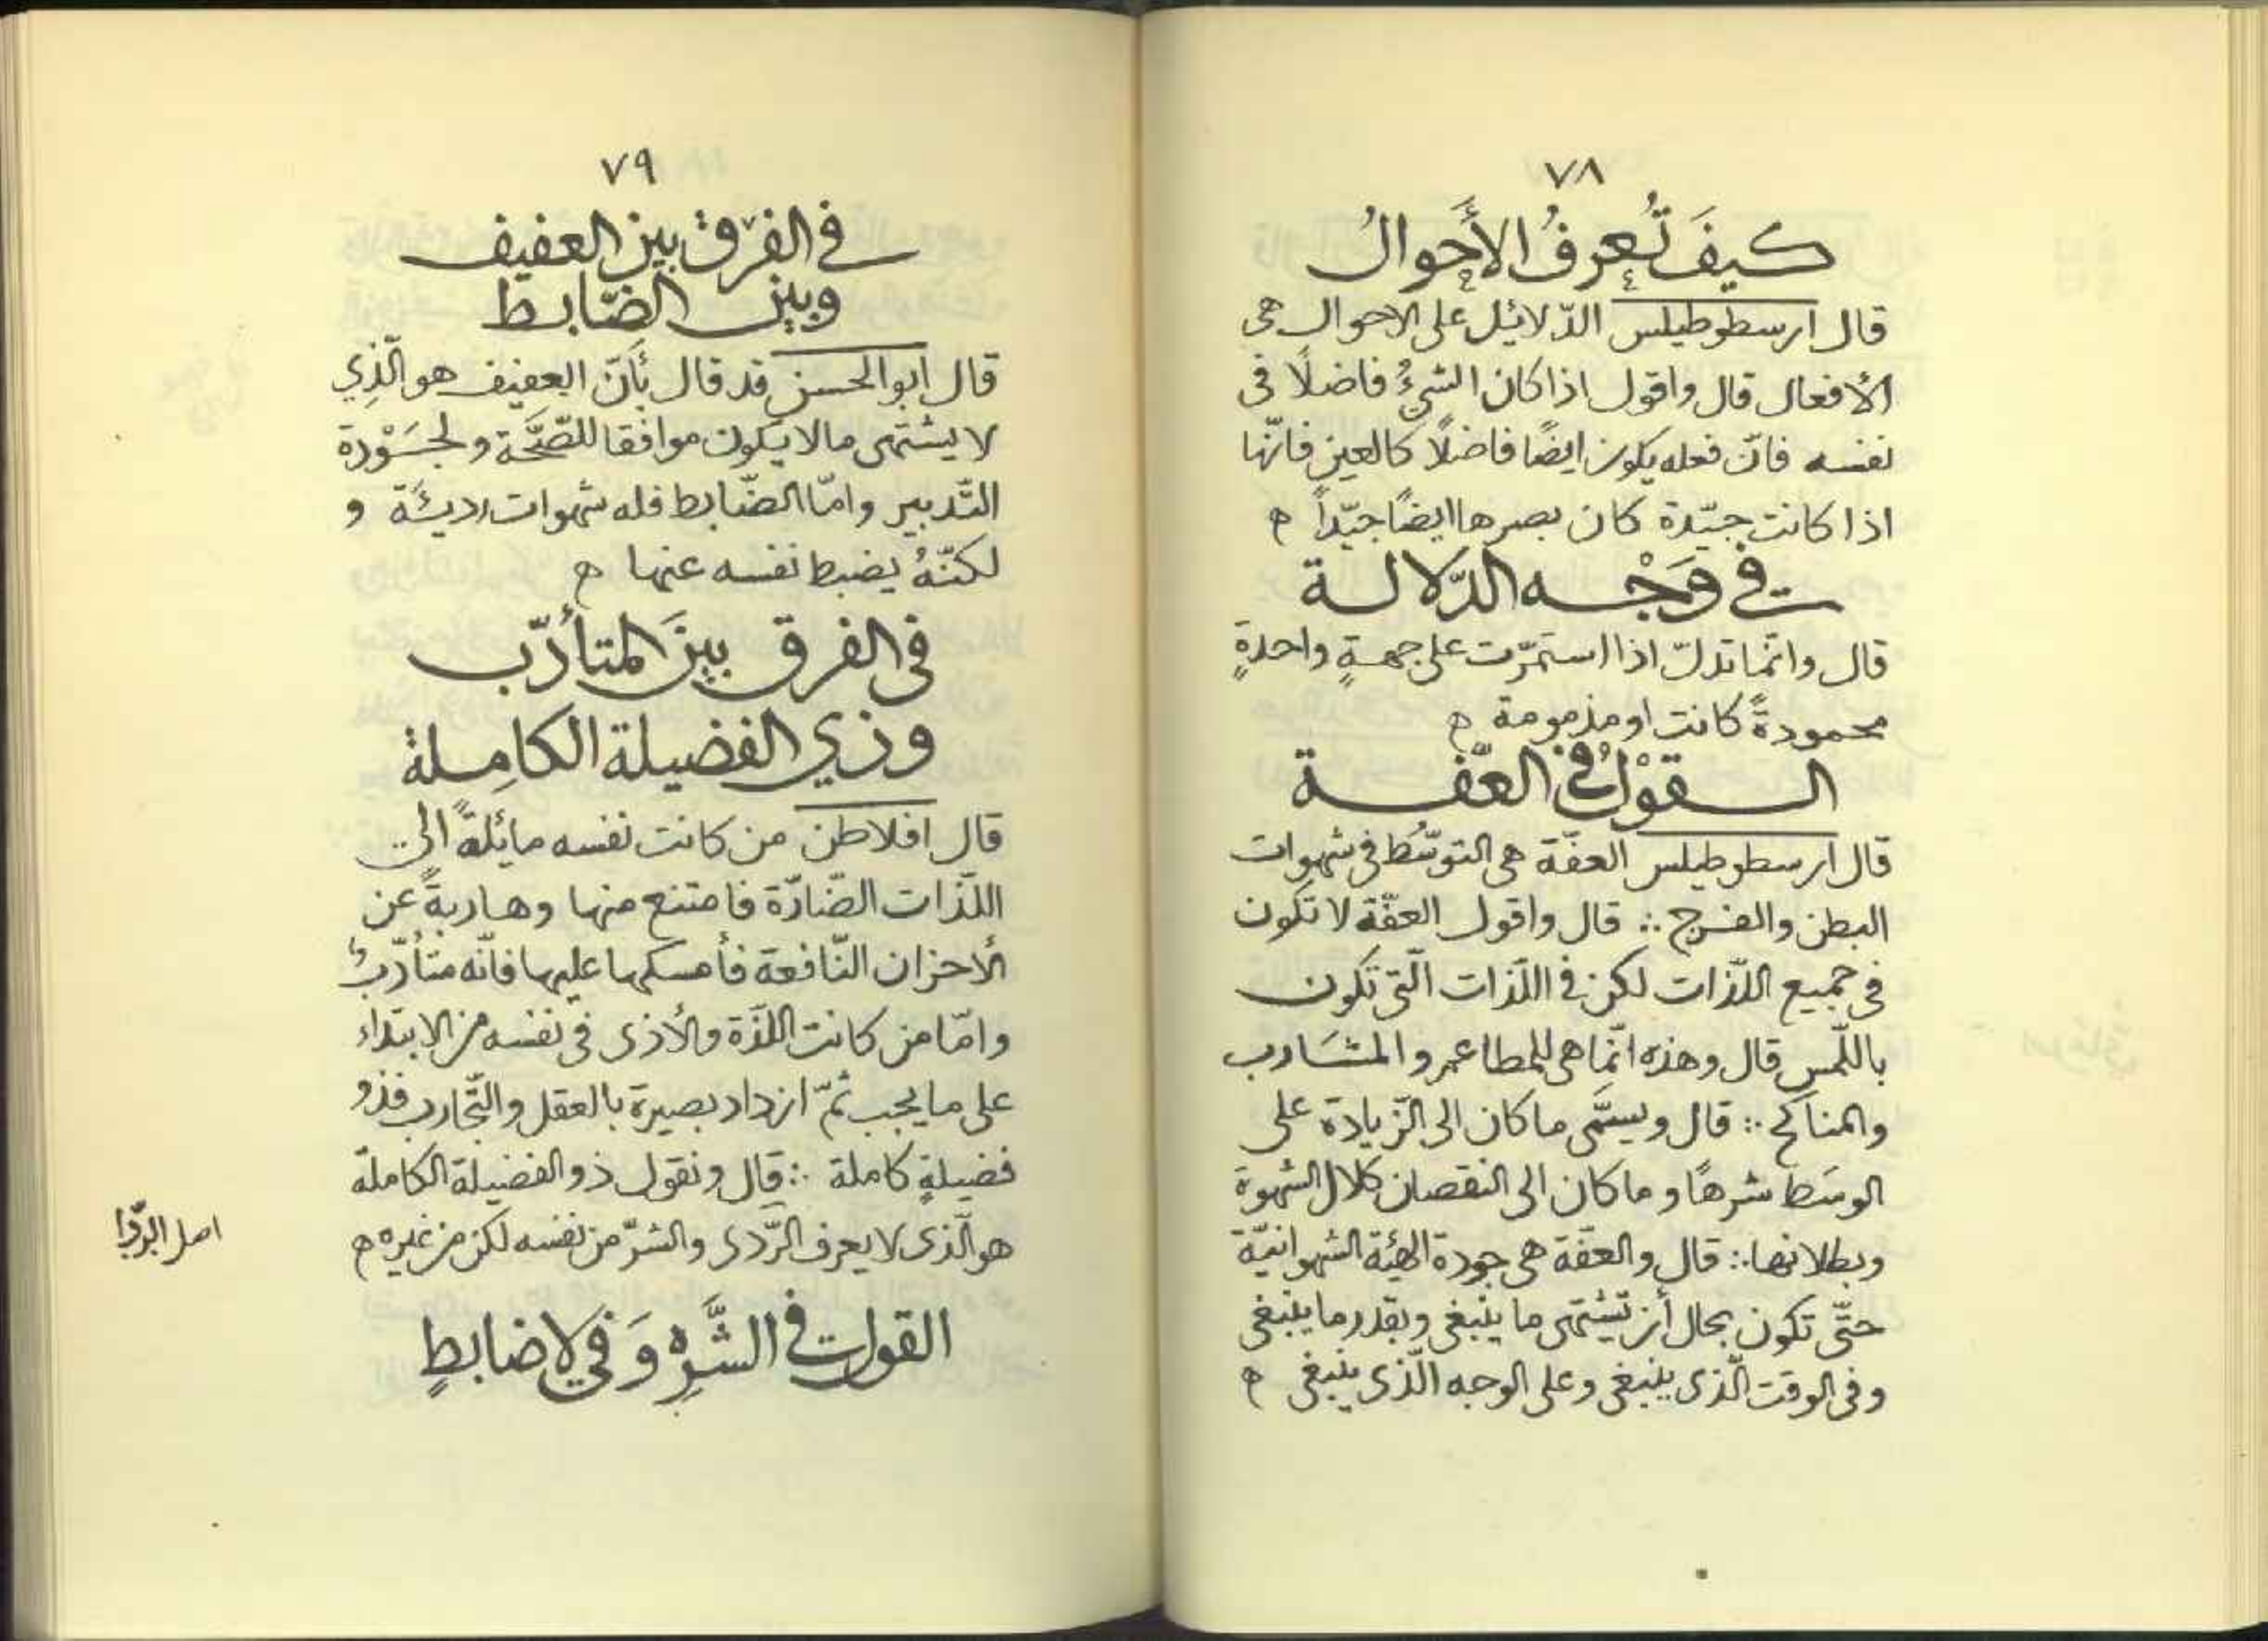 ٧٨
كيفَ تُعرفُ الأَحوالُ
قال ارسطوطيلس الدّلائل على الاحوال هى
الأفعال قال واقول اذا كان الشيءُ فاضلًا فى
نفسه فانّ فعله يكون ايضًا فاضلًا كالعين فانّها
اذا كانت جيّدة كان بصرها ايضًا جيّداً ه
فى وَجْه الدّلالة
قال وانّما تدلّ اذا استمرّت على جهةٍ واحدةٍ
محمودةً كانت او مذمومة ه
القوْلُ فى العفّة
قال ارسطوطيلس العفّة هى التوسّط فى شهوات
البطن والفرج ∴ قال واقول العفّة لا تكون
فى جميع اللذّات لكن فى اللذّات الّتى تكون
باللّمس قال وهذه انّما هى للمطاعم والمشَارب
والمناكح ∴ قال ويسمَّى ما كان الى الزّيادة على
الوسَط شرهًا وما كان الى النقصان كلال الشهوة
وبطلانها ∴ قال والعفّة هى جودة الهيئة الشهوانيّة
حتّى تكون بحال أن تشتهى ما ينبغى وبقدر ما ينبغى
وفى الوقت الّذى ينبغى وعلى الوجه الّذى ينبغى ه
٧٩
فى الفرق بين العفيف
وبين الضّابط
قال ابو الحسن قد قال بأنّ العفيف هو الّذِي
لا يشتهى ما لا يكون موافقا للصّحَّة ولجَوْدة
التّدبير وامّا الضّابط فله شهوات رديئَة و
لكنّهُ يضبط نفسه عنها ه
فى الفرق بينَ المتأدّب
وذي الفضيلة الكامِلة
قال افلاطن من كانت نفسه مائلةً الى
اللّذات الضّارّة فامتنع منها وهاربةً عن
الأحزان النّافعة فأمسكها عليها فانّه متأدّبٌ
وامّا من كانت اللذّة والأذى فى نفسه من الابتداء
على ما يجب ثمّ ازداد بصيرة بالعقل والتّجارب فذو
فضيلةٍ كاملة ∴ قال ونقول ذو الفضيلة الكاملة
هو الّذى لا يعرف الرّدى والشرّ من نفسه لكن من غيره ه
القول فى الشَّرِه وَفي لاضابطٍ
اصل